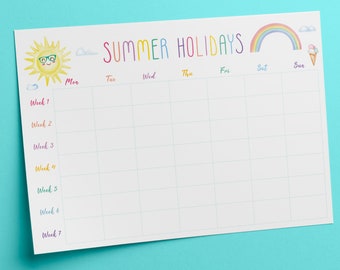 SUMMER HOLIDAYS
Mon Tue Wed Thu Fri Sat Sun
Week 1
Week 2
Week 3
Week 4
Week 5
Week 6
Week 7